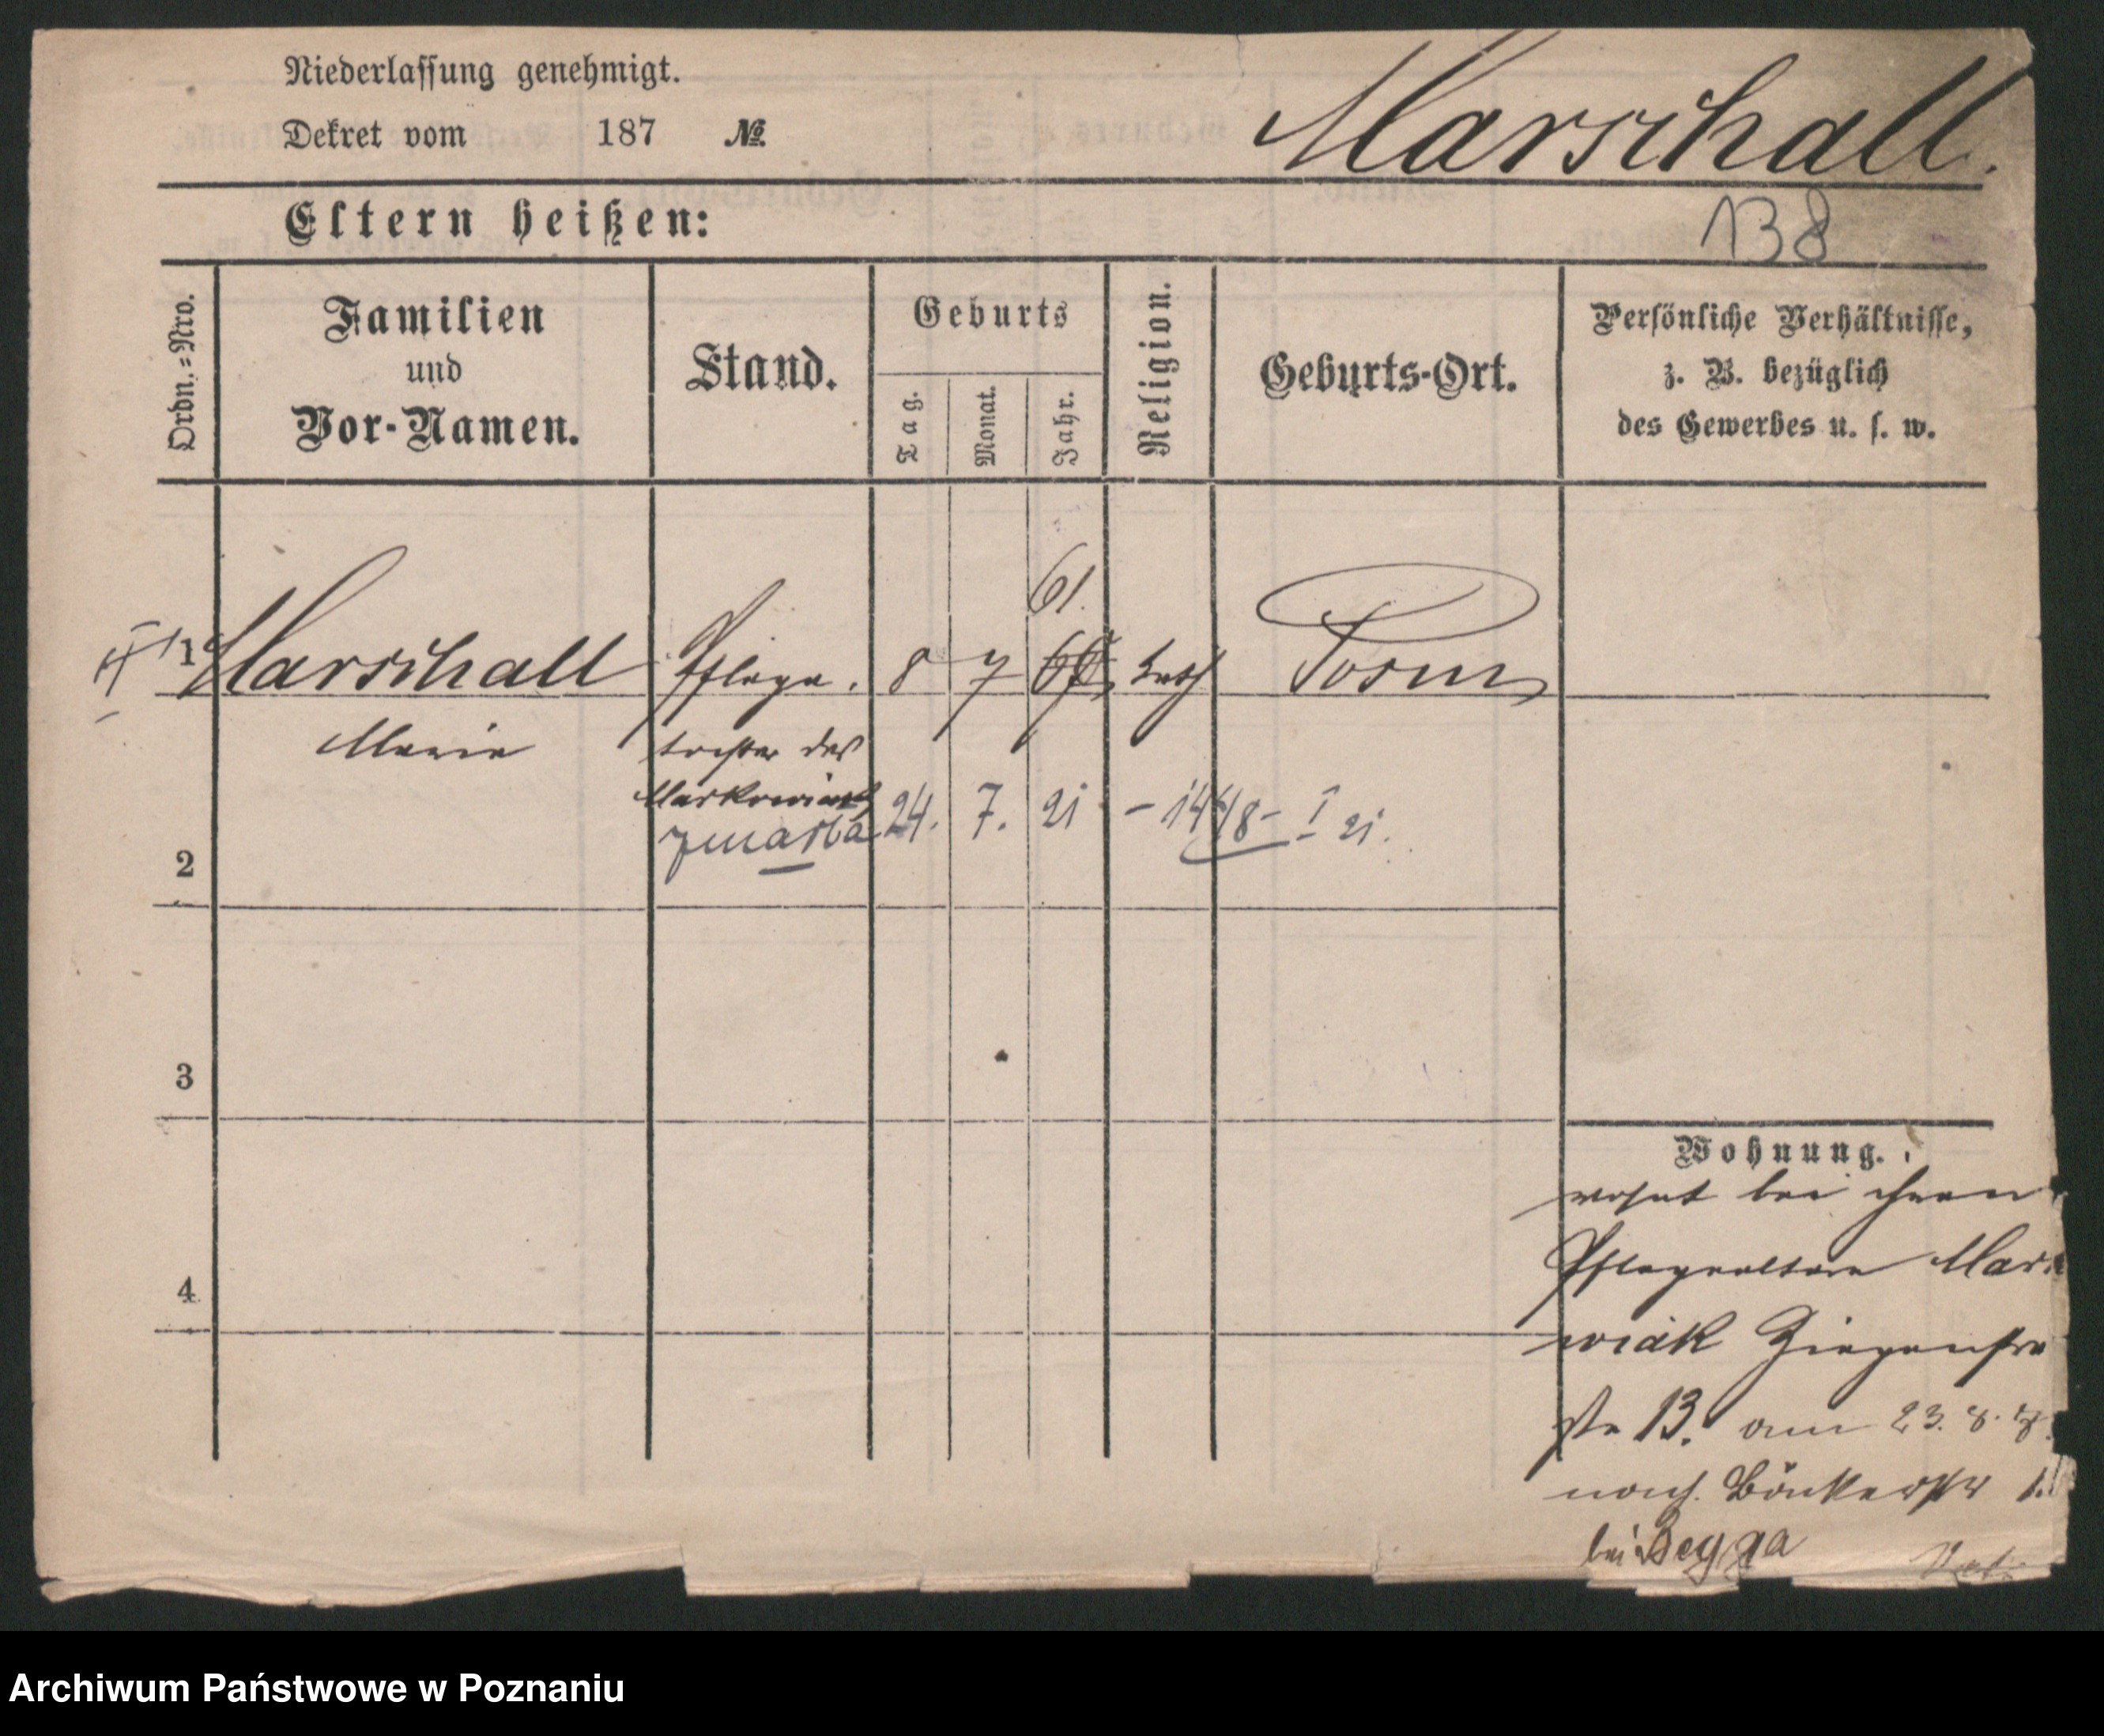 Niederlassung genehmigt.
Dekret vom 187 №
Marschall.
Eltern heißen:
138
Ordn.=Nro.
Familien
und
Vor-Namen.
Stand.
Geburts
Tag.
Monat.
Jahr.
Religion.
Geburts-Ort.
Persönliche Verhältnisse,
z. B. bezüglich
des Gewerbes u. s. w.
61.
1 Marschall Pflege. 8 7 kath Posen
Marie tochter des
Markowiak
zmarła 24. 7. 21 - 1448 - I 21.
2
3
4
Wohnung.
wohnt bei ihren
Pflegeeltern Mark
wiak Ziegenstra
ße 13. am 23. 8.
nach Böttcherstr
bei Begga
Archiwum Państwowe w Poznaniu